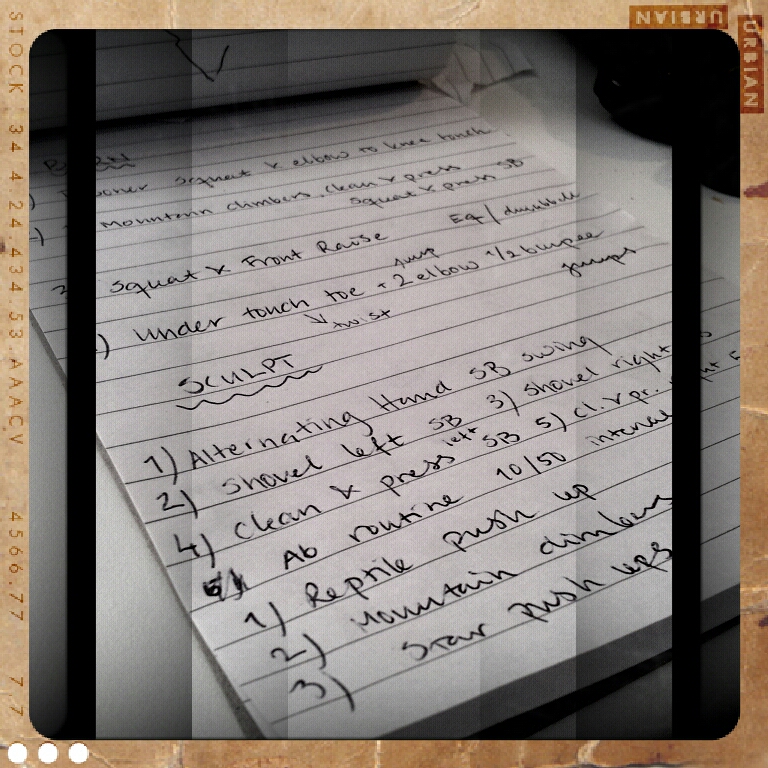 BURN
squat & elbow to knee touch
Mountain climbers, clean & press SB
squat & press
Squat & Front Raise EQ/dumbbells
4) Under touch toe + 2 elbow 1/2 burpee
jump
& twist
jumps
SCULPT
1) Alternating Hand SB swing
2) Shovel left SB 3) Shovel right
4) Clean & press left SB 5) Cl. & pr. right
Ab routine 10/50 interval
1) Reptile push up
2) Mountain climbers
3) Star push ups
URBIAN
URBIAN
STOCK 34 4 24.434 53.AAACV 4566.77 77